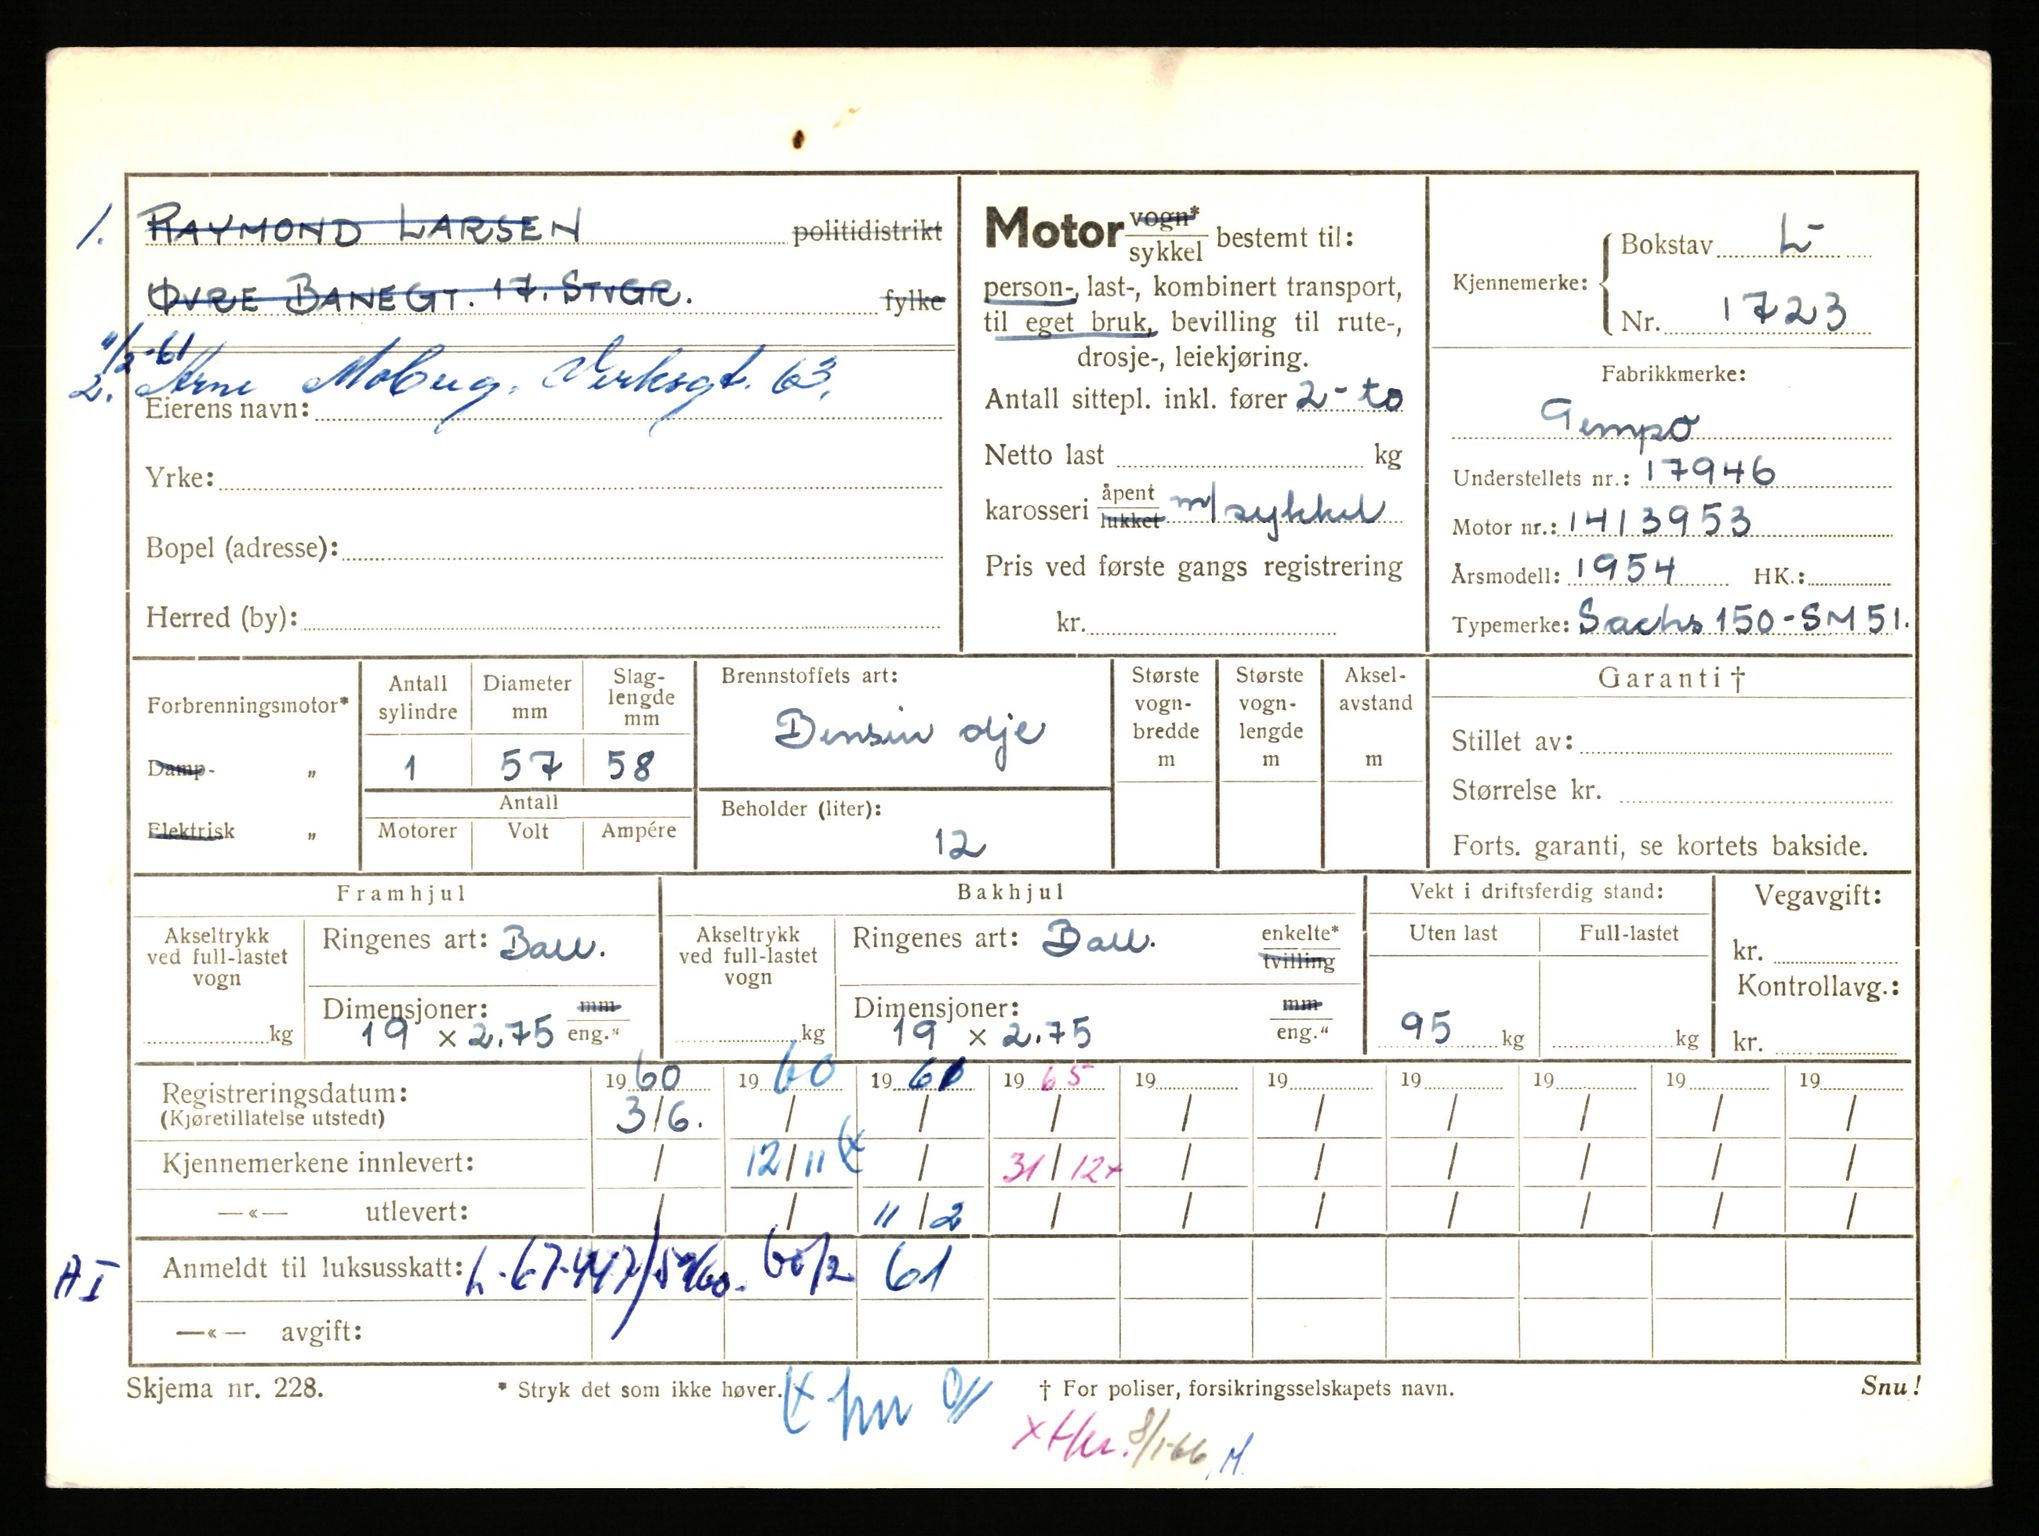 1. RAYMOND LARSEN politidistrikt
ØVRE BANEGT. 17. STVGR. fylke
11/2-61
2. Arne Verksgt. 63.
Eierens navn:
Yrke:
Bopel (adresse):
Herred (by):
Motor vogn* / sykkel bestemt til:
person-, last-, kombinert transport,
til eget bruk, bevilling til rute-,
drosje-, leiekjøring.
Antall sittepl. inkl. fører 2-to
Netto last kg
karosseri åpent / lukket m/sykkel
Pris ved første gangs registrering
kr.
Kjennemerke: Bokstav L-
Nr. 1723
Fabrikkmerke:
Tempo
Understellets nr.: 17946
Motor nr.: 1413953
Årsmodell: 1954 HK.:
Typemerke: Sachs 150-SM51.
Forbrenningsmotor*
Damp- „
Elektrisk „
Antall sylindre
Diameter mm
Slag-lengde mm
1 57 58
Antall
Motorer Volt Ampére
Brennstoffets art:
Bensin olje
Beholder (liter):
12
Største vogn-bredde m
Største vogn-lengde m
Aksel-avstand m
Garanti †
Stillet av:
Størrelse kr.
Forts. garanti, se kortets bakside.
Framhjul
Akseltrykk ved full-lastet vogn
kg
Ringenes art: Ball.
Dimensjoner: mm / eng."
19 x 2.75
Bakhjul
Akseltrykk ved full-lastet vogn
kg
Ringenes art: Ball. enkelte* / tvilling
Dimensjoner: mm / eng."
19 x 2.75
Vekt i driftsferdig stand:
Uten last Full-lastet
95 kg kg
Vegavgift:
kr.
Kontrollavg.:
kr.
Registreringsdatum: 1960 1960 1961 1965 19 19 19 19 19 19
(Kjøretillatelse utstedt) 3/6. / / / / / / / / /
Kjennemerkene innlevert: / 12/11 / 31/12x / / / / / /
—«— utlevert: / / 11/2 / / / / / / /
AI Anmeldt til luksusskatt: L-67447/ 60/2 61
—«— avgift:
Skjema nr. 228. * Stryk det som ikke høver. † For poliser, forsikringsselskapets navn. Snu!
8/1-66 M.